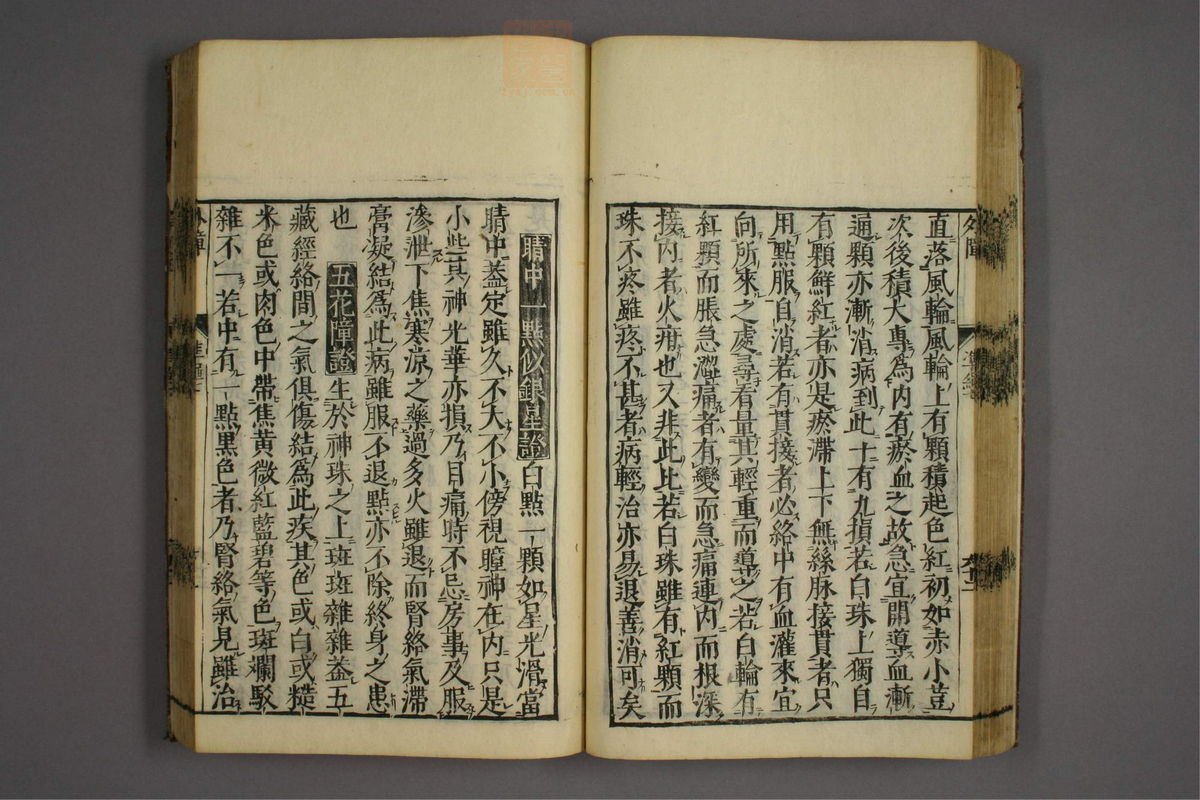 直落風輪風輪上有顆積起色紅初如赤小荳
次後積大專爲内有瘀血之故急宜開導血漸
通顆亦漸消病到此十有九損若白珠上獨自
有顆鮮紅者亦是瘀滯上下無絲脉接貫者只
用點服自消若有貫接者必絡中有血灌來宜
向所來之處尋看量其輕重而導之若白輪有
紅顆而脹急澀痛者有變而急痛連内而根深
接内者火疳也又非此比若白珠雖有紅顆而
珠不疼雖疼不甚者病輕治亦易退善消可矣
睛中一點似銀星證白點一顆如星光滑當
睛中蓋定雖久不大不小傍視瞳神在内只是
小些其神光華亦損乃目痛時不忌房事及服
滲泄下焦寒凉之藥過多火雖退而腎絡氣滯
膏凝結爲此病雖服不退點亦不除終身之患
也 五花障證生於神珠之上斑斑雜雜蓋五
藏經絡間之氣俱傷結爲此疾其色或白或糙
米色或肉色中帶焦黄微紅藍碧等色斑斕駁
雜不一若中有一點黑色者乃腎絡氣見雖治
外障